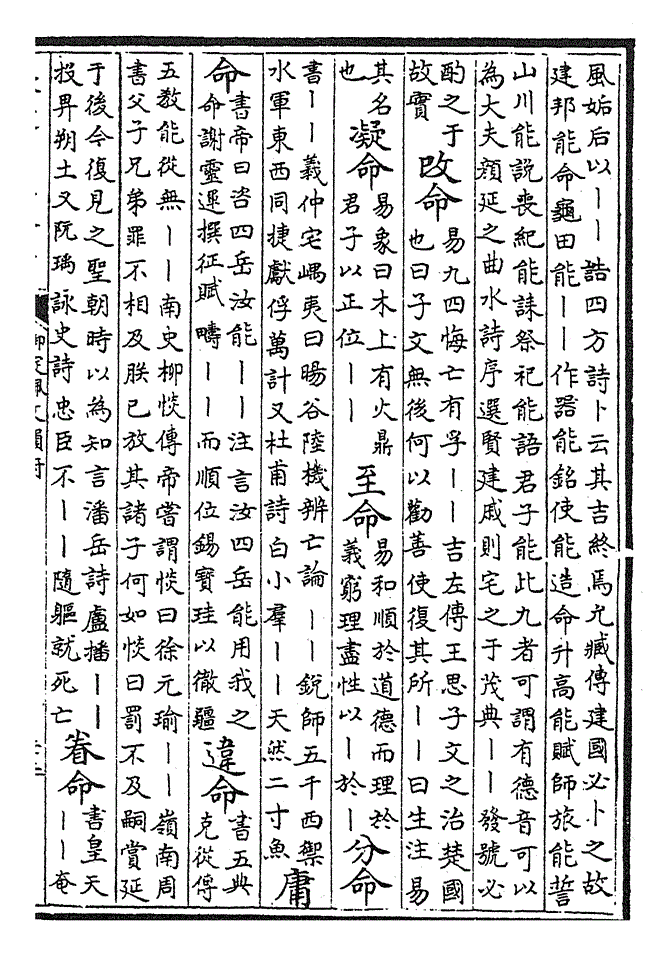 風姤后以丨丨誥四方詩卜云其吉終焉允臧傳建國必卜之故
建邦能命龜田能丨丨作器能銘使能造命升高能賦師旅能誓
山川能說喪紀能誄祭祀能語君子能此九者可謂有德音可以
為大夫顔延之曲水詩序選賢建戚則宅之于茂典丨丨發號必
酌之于
故實
改命
易九四悔亡有孚丨丨吉左傳王思子文之治楚國
也曰子文無後何以勸善使復其所丨丨曰生注易
其名
也
凝命
易象曰木上有火鼎
君子以正位丨丨
至命
易和順於道德而理於
義窮理盡性以丨於丨
分命
書丨丨義仲宅嵎夷曰暘谷陸機辨亡論丨丨銳師五千西禦
水軍東西同捷獻俘萬計又杜甫詩白小羣丨丨天然二寸魚
庸
命
書帝曰咨四岳汝能丨丨注言汝四岳能用我之
命謝靈運撰征賦疇丨丨而順位錫寶珪以徹疆
違命
書五典
克從傳
五教能從無丨丨南史柳惔傳帝嘗謂惔曰徐元瑜丨丨嶺南周
書父子兄弟罪不相及朕已放其諸子何如惔曰罰不及嗣賞延
于後今復見之聖朝時以為知言潘岳詩盧播丨丨
投畀朔土又阮瑀詠史詩忠臣不丨丨隨軀就死亡
眷命
書皇天
丨丨奄